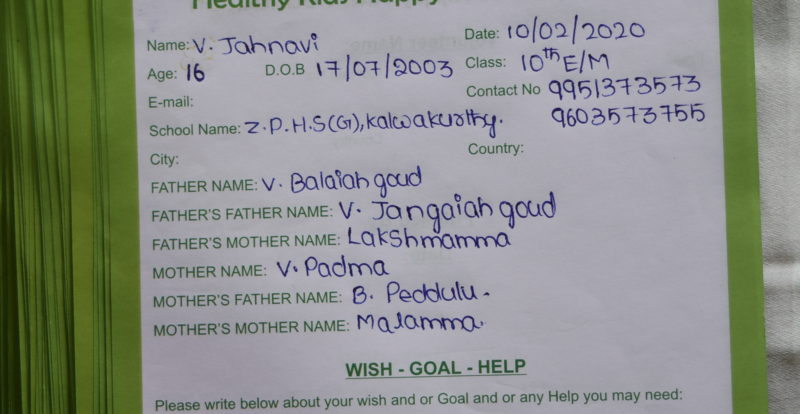 Healthy Kids Happy
Name: V. Jahnavi Date: 10/02/2020
Age: 16 D.O.B 17/07/2003 Class: 10th E/M
E-mail: Contact No 9951373573
School Name: Z.P.H.S(G), Kalwakurthy. 9603573755
City: Country:
FATHER NAME: V. Balaiah goud
FATHER'S FATHER NAME: V. Jangaiah goud
FATHER'S MOTHER NAME: Lakshmamma
MOTHER NAME: V. Padma
MOTHER'S FATHER NAME: B. Peddulu.
MOTHER'S MOTHER NAME: Malamma.
WISH - GOAL - HELP
Please write below about your wish and or Goal and or any Help you may need: